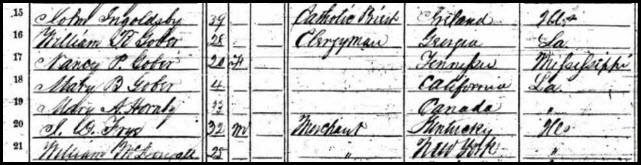 15 John Ingoldsby 39 Catholic Priest Ireland
16 William R Gober 28 Clergyman Georgia La
17 Nancy P Gober 20 Tennessee Mississippi
18 Mary B Gober 4 California La
19 Mary A Hornby Canada "
20 32 m Merchant Kentucky
21 William 25 " New York "